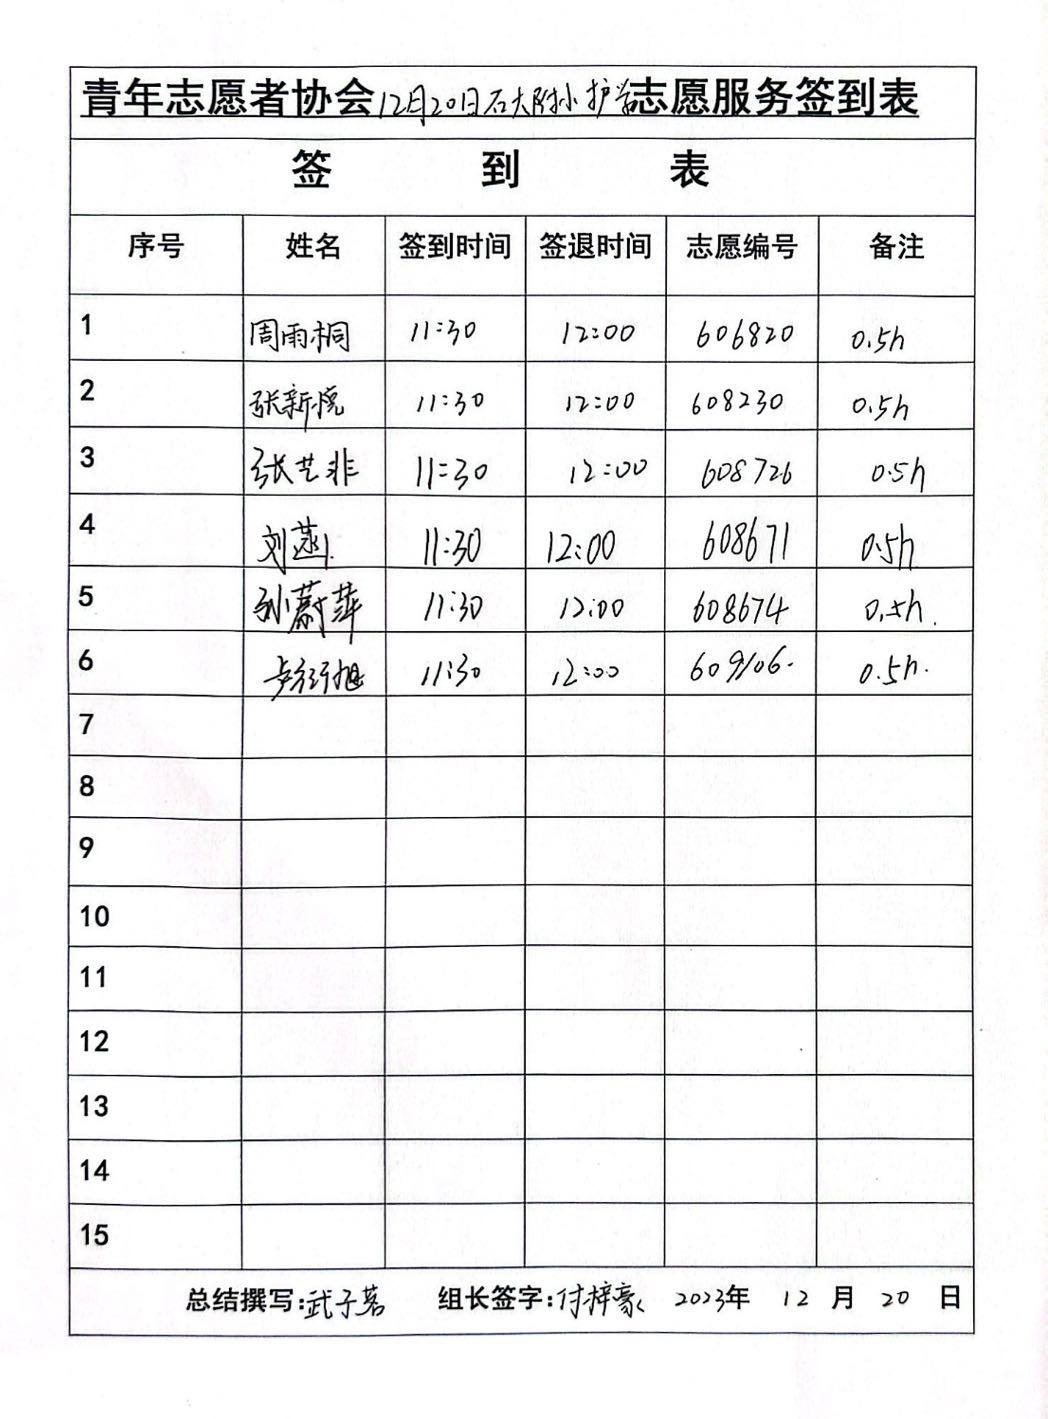 青年志愿者协会12月20日石大附小护学志愿服务签到表
签 到 表
序号 姓名 签到时间 签退时间 志愿编号 备注
1 周雨桐 11:30 12:00 606820 0.5h
2 张新悦 11:30 12:00 608230 0.5h
3 张艺非 11:30 12:00 608726 0.5h
4 刘 11:30 12:00 608671 0.5h
5 孙蔚萍 11:30 12:00 608674 0.5h.
6 11:30 12:00 609106. 0.5h.
7
8
9
10
11
12
13
14
15
总结撰写:武子茗 组长签字:付梓豪 2023年 12 月 20 日